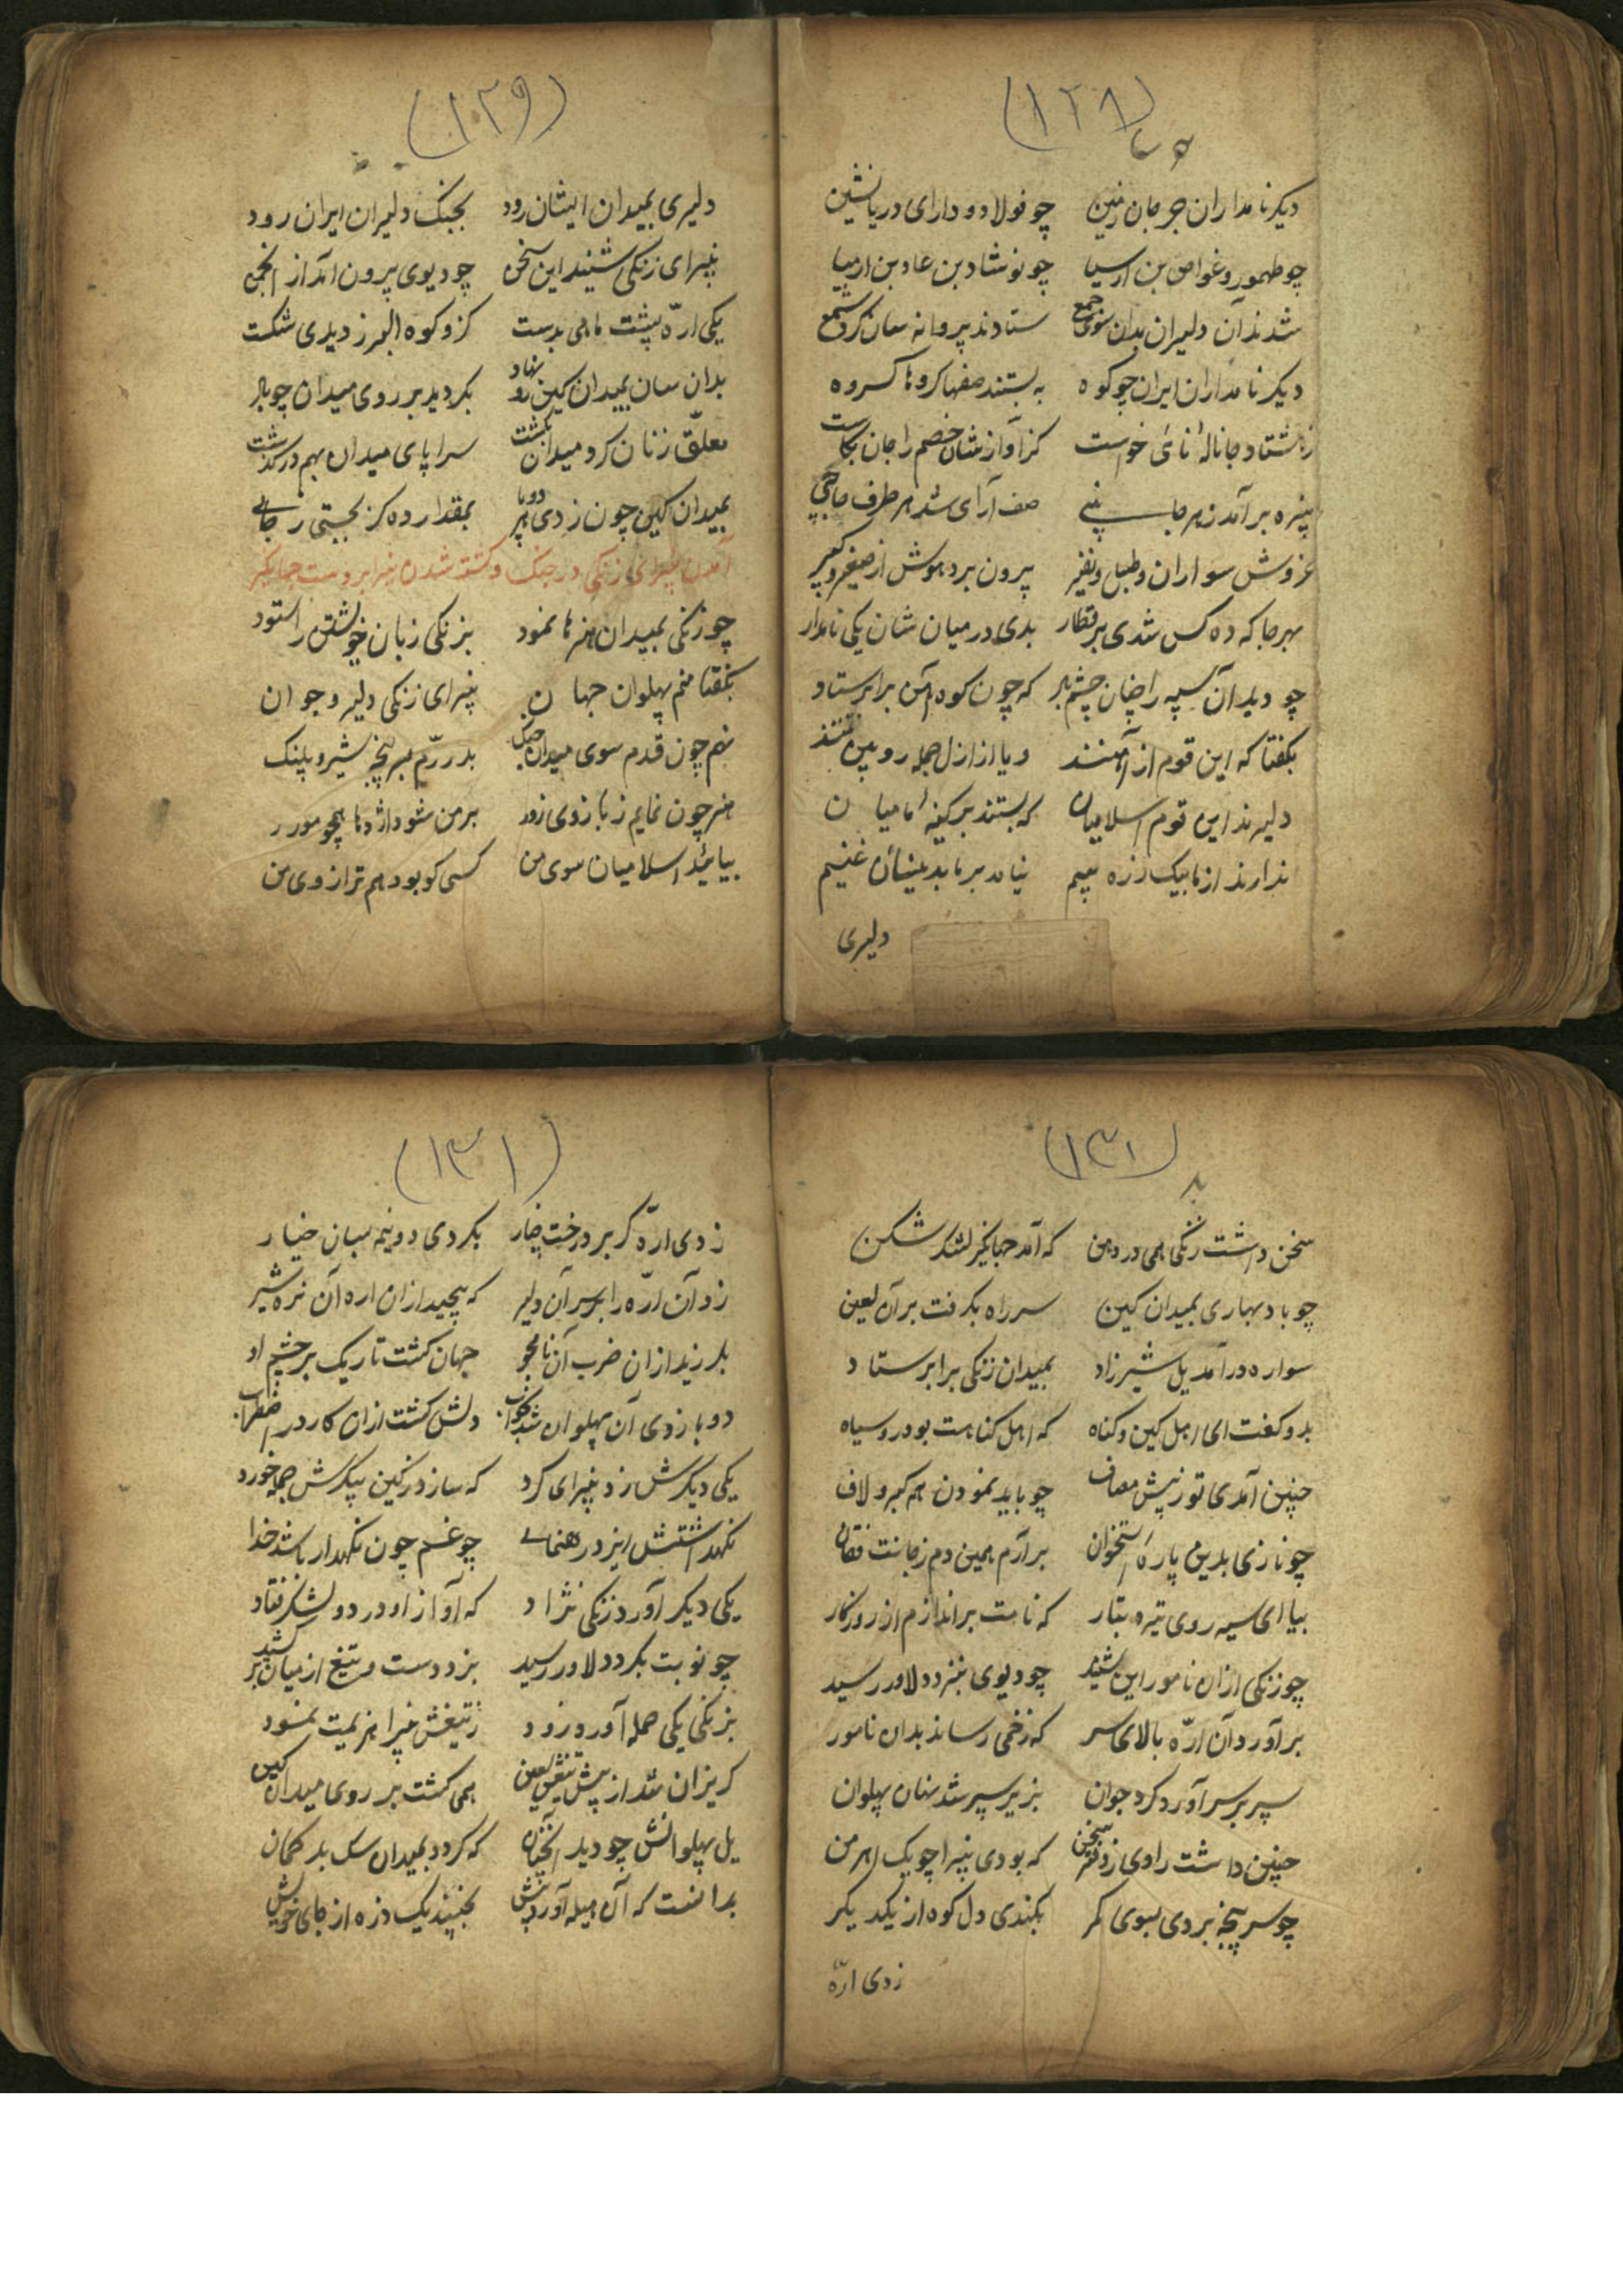 (۱۲۸)
دیکر نامداران جرجان زمین چو فولاد و دارای دریانشین
چو طهمور و غواص بن ارسیا چو نوشاد بن عاد بن ارمیا
شدند آن دلیران بدان سوی جمع ستادند پروانه سان کرد شمع
دیکر نامداران ایران چو کوه به بستند صفها کروها کروه
ز هشتاد جا نالهٔ نای خواست کز آوازشان خصم را جان بکاست
بنیزه برآمد ز هر جا صف آرای شد هر طرف
خروش سواران و طبل و نفیر برون برد هوش از صغیر و کبیر
بهر جا که ده کس شدی بر قطار بدی در میان شان یکی نامدار
چو دید آن سپه را چنان که چون کوه آهن برابر ستاد
بکفتا که این قوم از آهنند و یا از ازل جمله رویین تنند
دلیرند این قوم اسلامیان که بستند بر کینهٔ ما میان
ندارند از ما بیک ذره بیم نیامد بر ما بدینسان غنیم
دلیری
(۱۲۹)
دلیری بمیدان ایشان رود بجنک دلیران ایران رود
بنیرای زنکی شنید این سخن چو دیوی برون آمد از انجمن
یکی ارّه پشت ماهی بدست کزو کوه البرز دیدی شکست
بدان سان بمیدان کین رو نهاد بکردید بر روی میدان چو باد
معلّق زنان کرد میدان بکشت سراپای میدان بهم در نوشت
بمیدان کین چون زدی هر دو پا بمقدار ده کز بجستی ز جای
آمدن بنیرای زنکی در جنک و کشته شدن بنیرا بر دست جهانکیر
چو زنکی بمیدان هنرها نمود بزنکی زبان خویشتن را ستود
بکفتا منم پهلوان جهان بنیرای زنکی دلیر و جوان
نهم چون قدم سوی میدان جنک بدررّم سر پنجه شیر و پلنک
هنر چون نمایم ز بازوی زور بر من شود اژدها همچو مور
بیایید اسلامیان سوی من کسی کو بود هم ترازوی من
(۱۳۰)
سخن داشت زنکی همی در دهن که آمد جهانکیر لشکر شکن
چو باد بهاری بمیدان کین سر راه بکرفت بر آن لعین
سواره درآمد یل شیرزاد بمیدان زنکی برابر ستاد
بدو کفت ای اهل کین و کناه که اهل کناهت بود رو سیاه
چنین آمدی تو ز پیش مصاف چو باید نمودن همه کبر و لاف
چو نازی بدین پارهٔ استخوان برآرم همین دم ز جانت فغان
بیا ای سیه روی تیره تبار که نامت براندازم از روزکار
چو زنکی از آن نامور این شنید چو دیوی بنزد دلاور رسید
برآورد آن ارّه بالای سر که زخمی رساند بدان نامور
سپر بر سر آورد کرد جوان بزیر سپر شد نهان پهلوان
چنین داشت راوی ز دفتر سخن که بودی بنیرا چو یک اهرمن
چو سرپنجه بردی بسوی کمر بکندی دل کوه از یکدیکر
زدی ارّه
(۱۳۱)
زدی ارّه کر بر درخت چنار بکردی دو نیمه بسان خیار
زد آن ارّه را بر سر آن دلیر که پیچید از آن اره آن نره شیر
بلرزید از آن ضرب آن نامجو جهان کشت تاریک بر چشم او
دو بازوی آن پهلوان شد بخواب دلش کشت از آن کار در اضطراب
یکی دیکرش زد بنیرای کرد که سازد ز کین پیکرش جمله خورد
نکهداشتش ایزد رهنمای چو غم چون نکهدار باشد خدا
یکی دیکر آورد زنکی نژاد که آواز او در دو لشکر فتاد
چو نوبت بکرد دلاور رسید بزد دست و تیغ از میان برکشید
بزنکی یکی حمله آورد زود ز تیغش بنیرا هزیمت نمود
کریزان شد از پیش تیغش لعین همی کشت بر روی میدان کین
یل پهلوانش چو دید آنچنان که کردد بمیدان سک بد کمان
بدانست که آن حیله آورد پیش نجنبید یک ذره از جای خویش